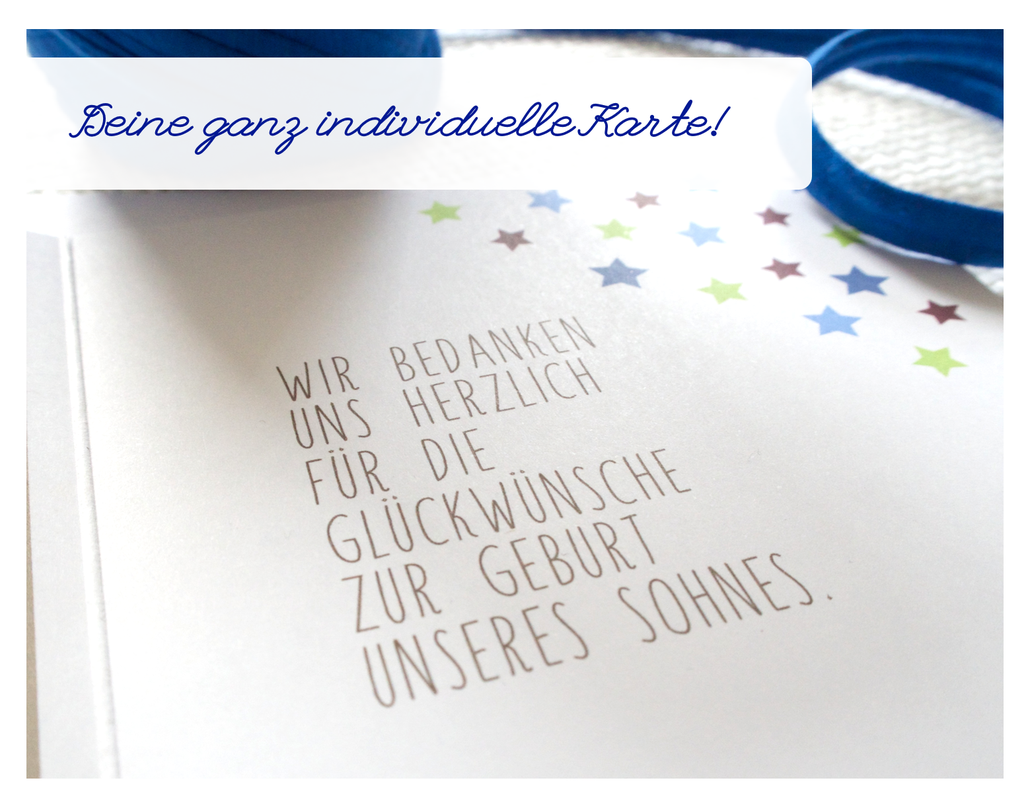 Deine ganz individuelle Karte!
WIR BEDANKEN
UNS HERZLICH
FÜR DIE
GLÜCKWÜNSCHE
ZUR GEBURT
UNSERES SOHNES.